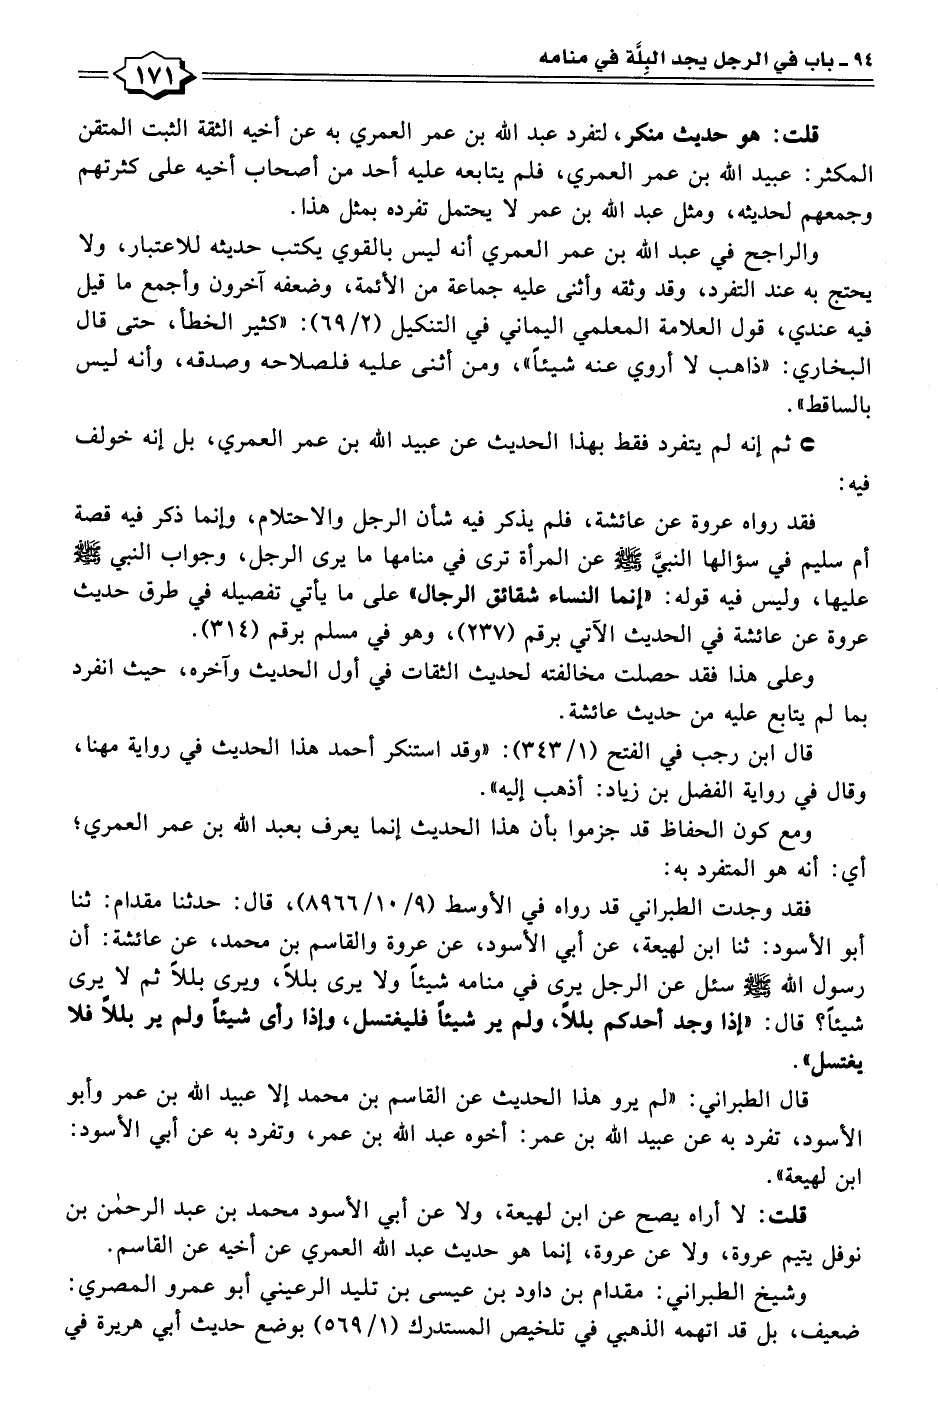 ٩٤ - باب في الرجل يجد البِلَّة في منامه
١٧١
قلت: هو حديث منكر، لتفرد عبد الله بن عمر العمري به عن أخيه الثقة الثبت المتقن
المكثر: عبيد الله بن عمر العمري، فلم يتابعه عليه أحد من أصحاب أخيه على كثرتهم
وجمعهم لحديثه، ومثل عبد الله بن عمر لا يحتمل تفرده بمثل هذا.
والراجح في عبد الله بن عمر العمري أنه ليس بالقوي يكتب حديثه للاعتبار، ولا
يحتج به عند التفرد، وقد وثقه وأثنى عليه جماعة من الأئمة، وضعفه آخرون وأجمع ما قيل
فيه عندي، قول العلامة المعلمي اليماني في التنكيل (٦٩/٢): «كثير الخطأ، حتى قال
البخاري: «ذاهب لا أروي عنه شيئاً»، ومن أثنى عليه فلصلاحه وصدقه، وأنه ليس
بالساقط».
ثم إنه لم يتفرد فقط بهذا الحديث عن عبيد الله بن عمر العمري، بل إنه خولف
فيه:
فقد رواه عروة عن عائشة، فلم يذكر فيه شأن الرجل والاحتلام، وإنما ذكر فيه قصة
أم سليم في سؤالها النبيَّ ﷺ عن المرأة ترى في منامها ما يرى الرجل، وجواب النبي ﷺ
عليها، وليس فيه قوله: «إنما النساء شقائق الرجال» على ما يأتي تفصيله في طرق حديث
عروة عن عائشة في الحديث الآتي برقم (٢٣٧)، وهو في مسلم برقم (٣١٤).
وعلى هذا فقد حصلت مخالفته لحديث الثقات في أول الحديث وآخره، حيث انفرد
بما لم يتابع عليه من حديث عائشة.
قال ابن رجب في الفتح (٣٤٣/١): «وقد استنكر أحمد هذا الحديث في رواية مهنا،
وقال في رواية الفضل بن زياد: أذهب إليه».
ومع كون الحفاظ قد جزموا بأن هذا الحديث إنما يعرف بعبد الله بن عمر العمري؛
أي: أنه هو المتفرد به:
فقد وجدت الطبراني قد رواه في الأوسط (٨٩٦٦/١٠/٩)، قال: حدثنا مقدام: ثنا
أبو الأسود: ثنا ابن لهيعة، عن أبي الأسود، عن عروة والقاسم بن محمد، عن عائشة: أن
رسول الله ﷺ سئل عن الرجل يرى في منامه شيئاً ولا يرى بللاً، ويرى بللاً ثم لا يرى
شيئاً؟ قال: «إذا وجد أحدكم بللاً، ولم ير شيئاً فليغتسل، وإذا رأى شيئاً ولم ير بللاً فلا
يغتسل».
قال الطبراني: «لم يرو هذا الحديث عن القاسم بن محمد إلا عبيد الله بن عمر وأبو
الأسود، تفرد به عن عبيد الله بن عمر: أخوه عبد الله بن عمر، وتفرد به عن أبي الأسود:
ابن لهيعة».
قلت: لا أراه يصح عن ابن لهيعة، ولا عن أبي الأسود محمد بن عبد الرحمٰن بن
نوفل يتيم عروة، ولا عن عروة، إنما هو حديث عبد الله العمري عن أخيه عن القاسم.
وشيخ الطبراني: مقدام بن داود بن عيسى بن تليد الرعيني أبو عمرو المصري:
ضعيف، بل قد اتهمه الذهبي في تلخيص المستدرك (٥٦٩/١) بوضع حديث أبي هريرة في